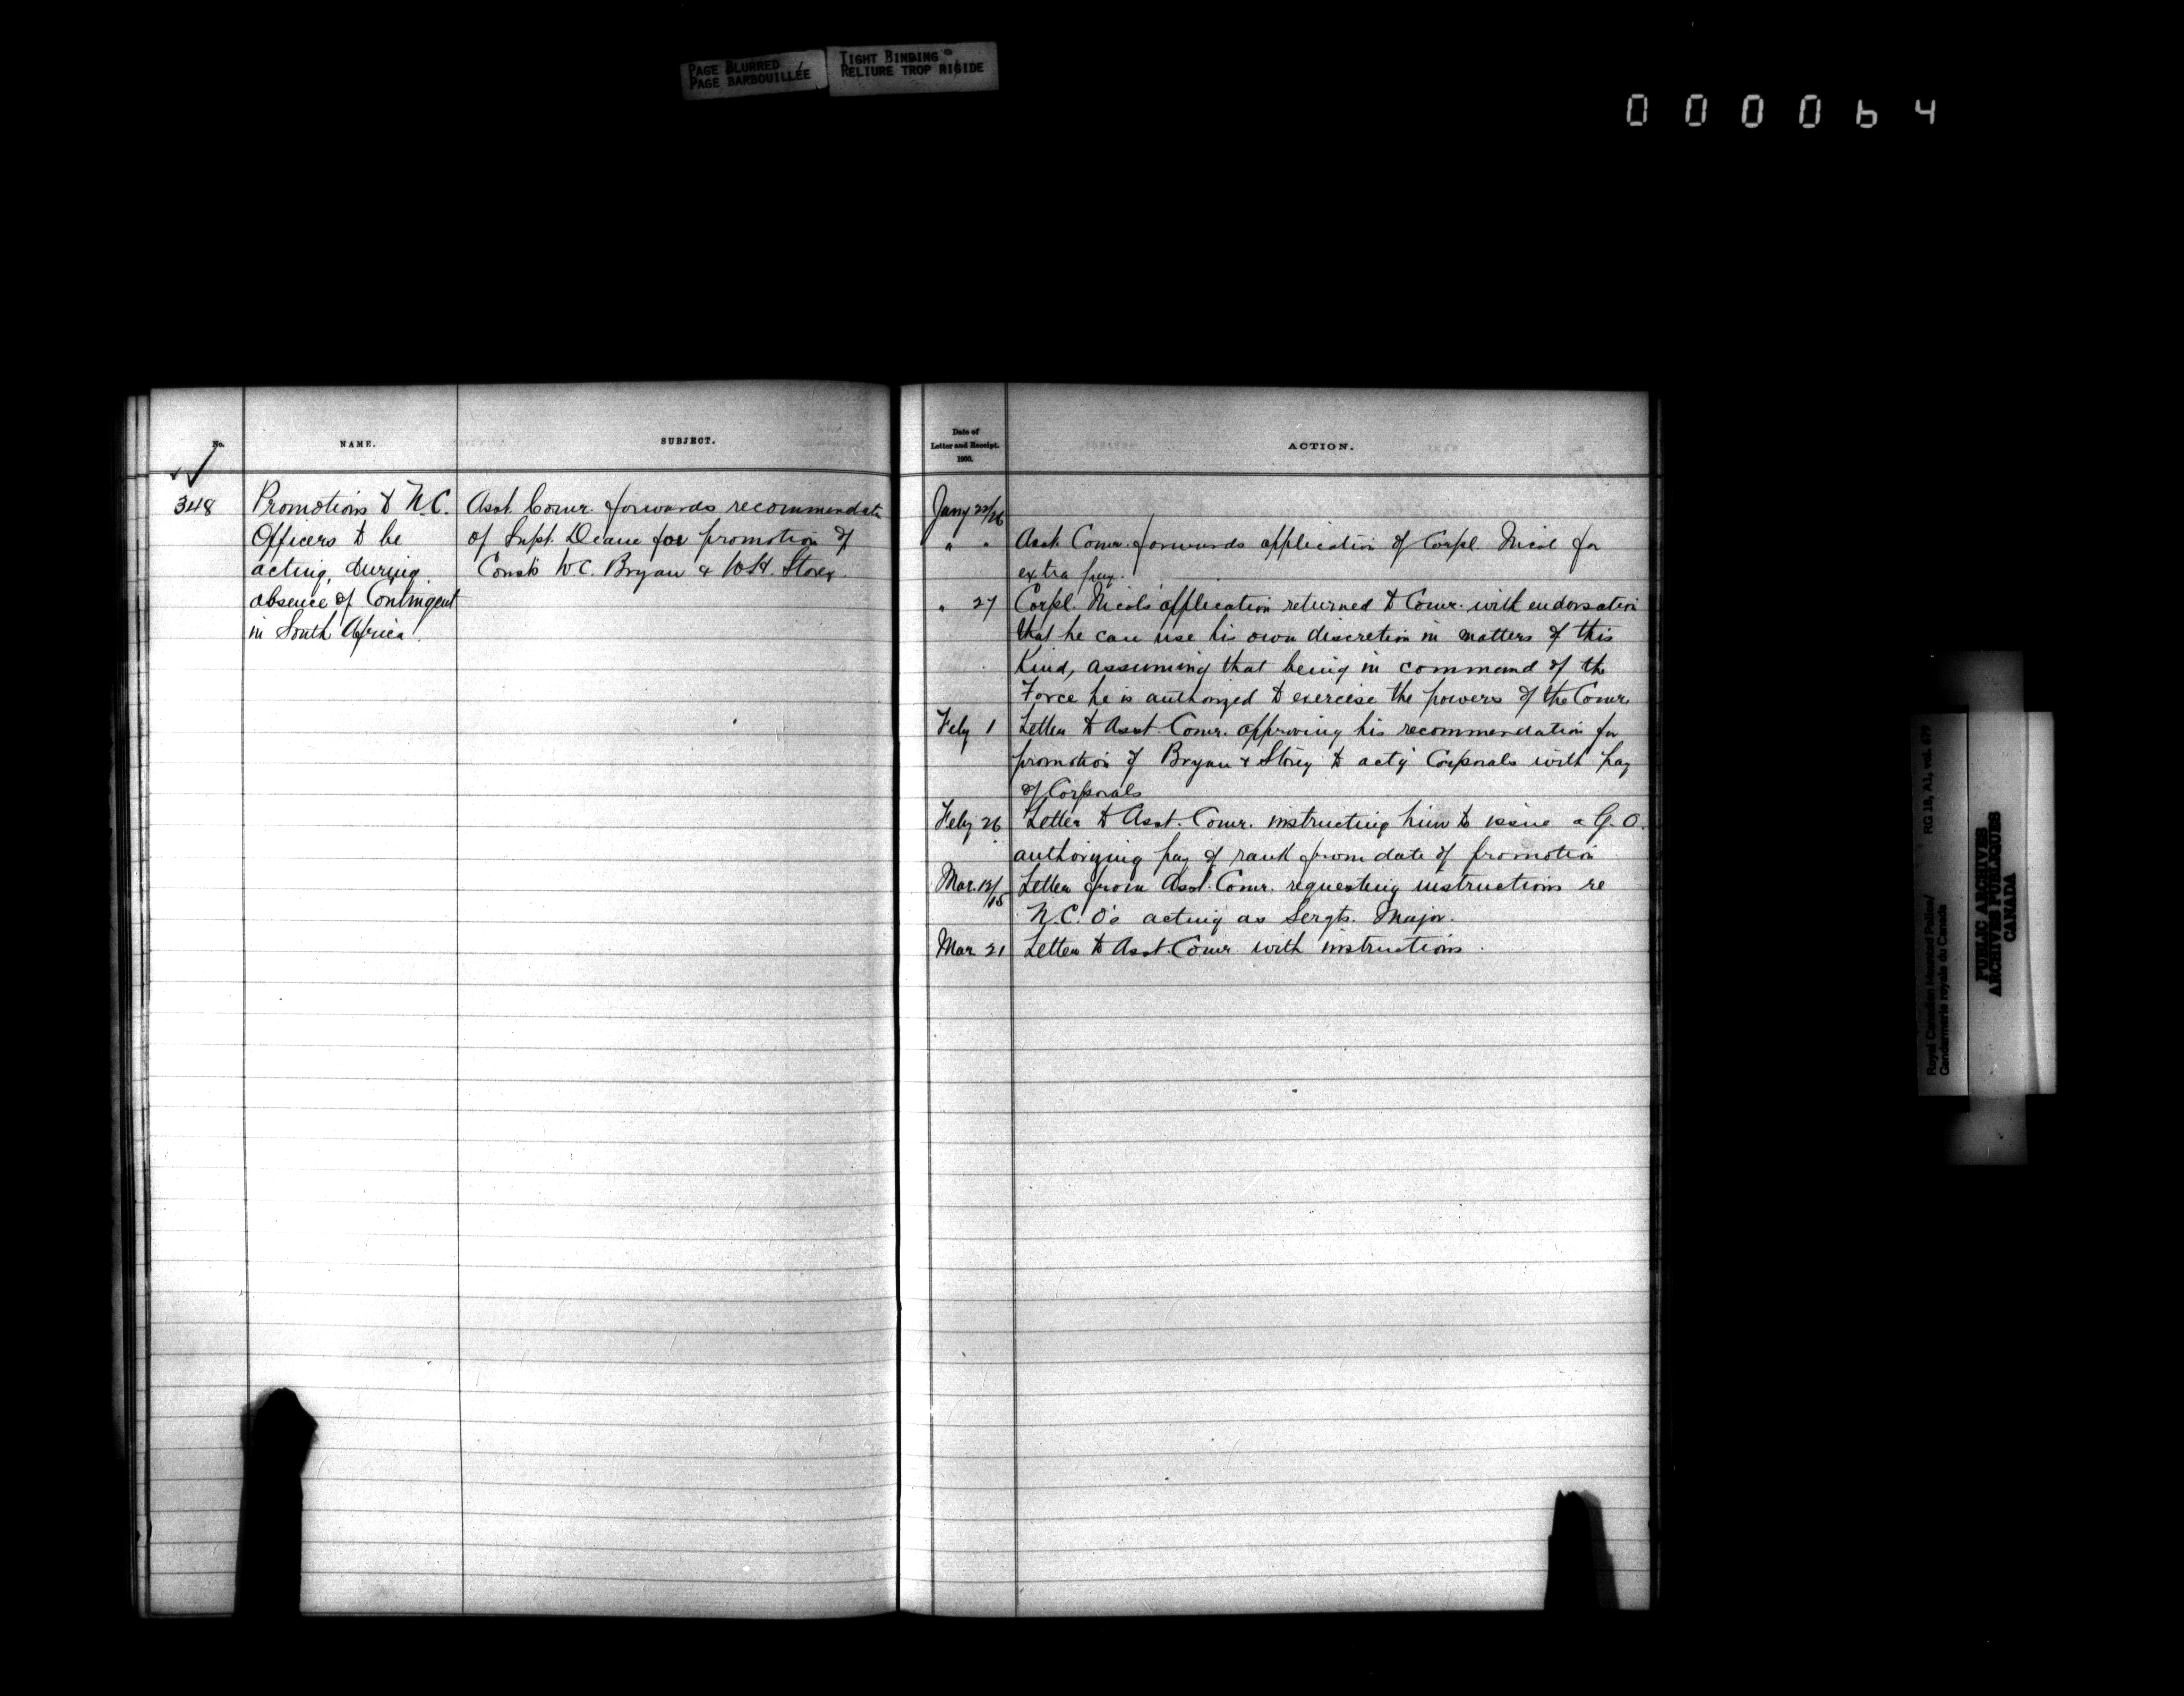 PAGE BLURRED
PAGE BARBOUILLÉE
TIGHT BINDING
RELIURE TROP RIGIDE
000064
No.
NAME.
SUBJECT.
348
Promotions to N.C.
Officers to be
acting, during
absence of Contingent
in South Africa.
Asst. Comr. forwards recommendatn
of Supt. Deane for promotion of
Consts W.C. Bryan & W.H. Storey.
Date of
Letter and Receipt.
1900.
ACTION.
Jany 22/26
" " Asst. Comr. forwards application of Corpl. Nicol for
extra pay.
" 27 Corpl. Nicols application returned to Comr. with endorsation
that he can use his own discretion in matters of this
Kind, assuming that being in command of the
Force he is authorized to exercise the powers of the Comr.
Feby 1 Letter to Asst. Comr. approving his recommendation for
promotion of Bryan & Storey to actg Corporals with pay
of Corporals
Feby 26 Letter to Asst. Comr. instructing him to issue a G.O.
authorizing pay of rank from date of promotion
Mar. 12/15 Letter from Asst. Comr. requesting instructions re
N.C.O's acting as Sergts. Major.
Mar. 21 Letter to Asst. Comr. with instructions.
Royal Canadian Mounted Police/
Gendarmerie royale du Canada
RG 18, A1, vol. 679
PUBLIC ARCHIVES
ARCHIVES PUBLIQUES
CANADA